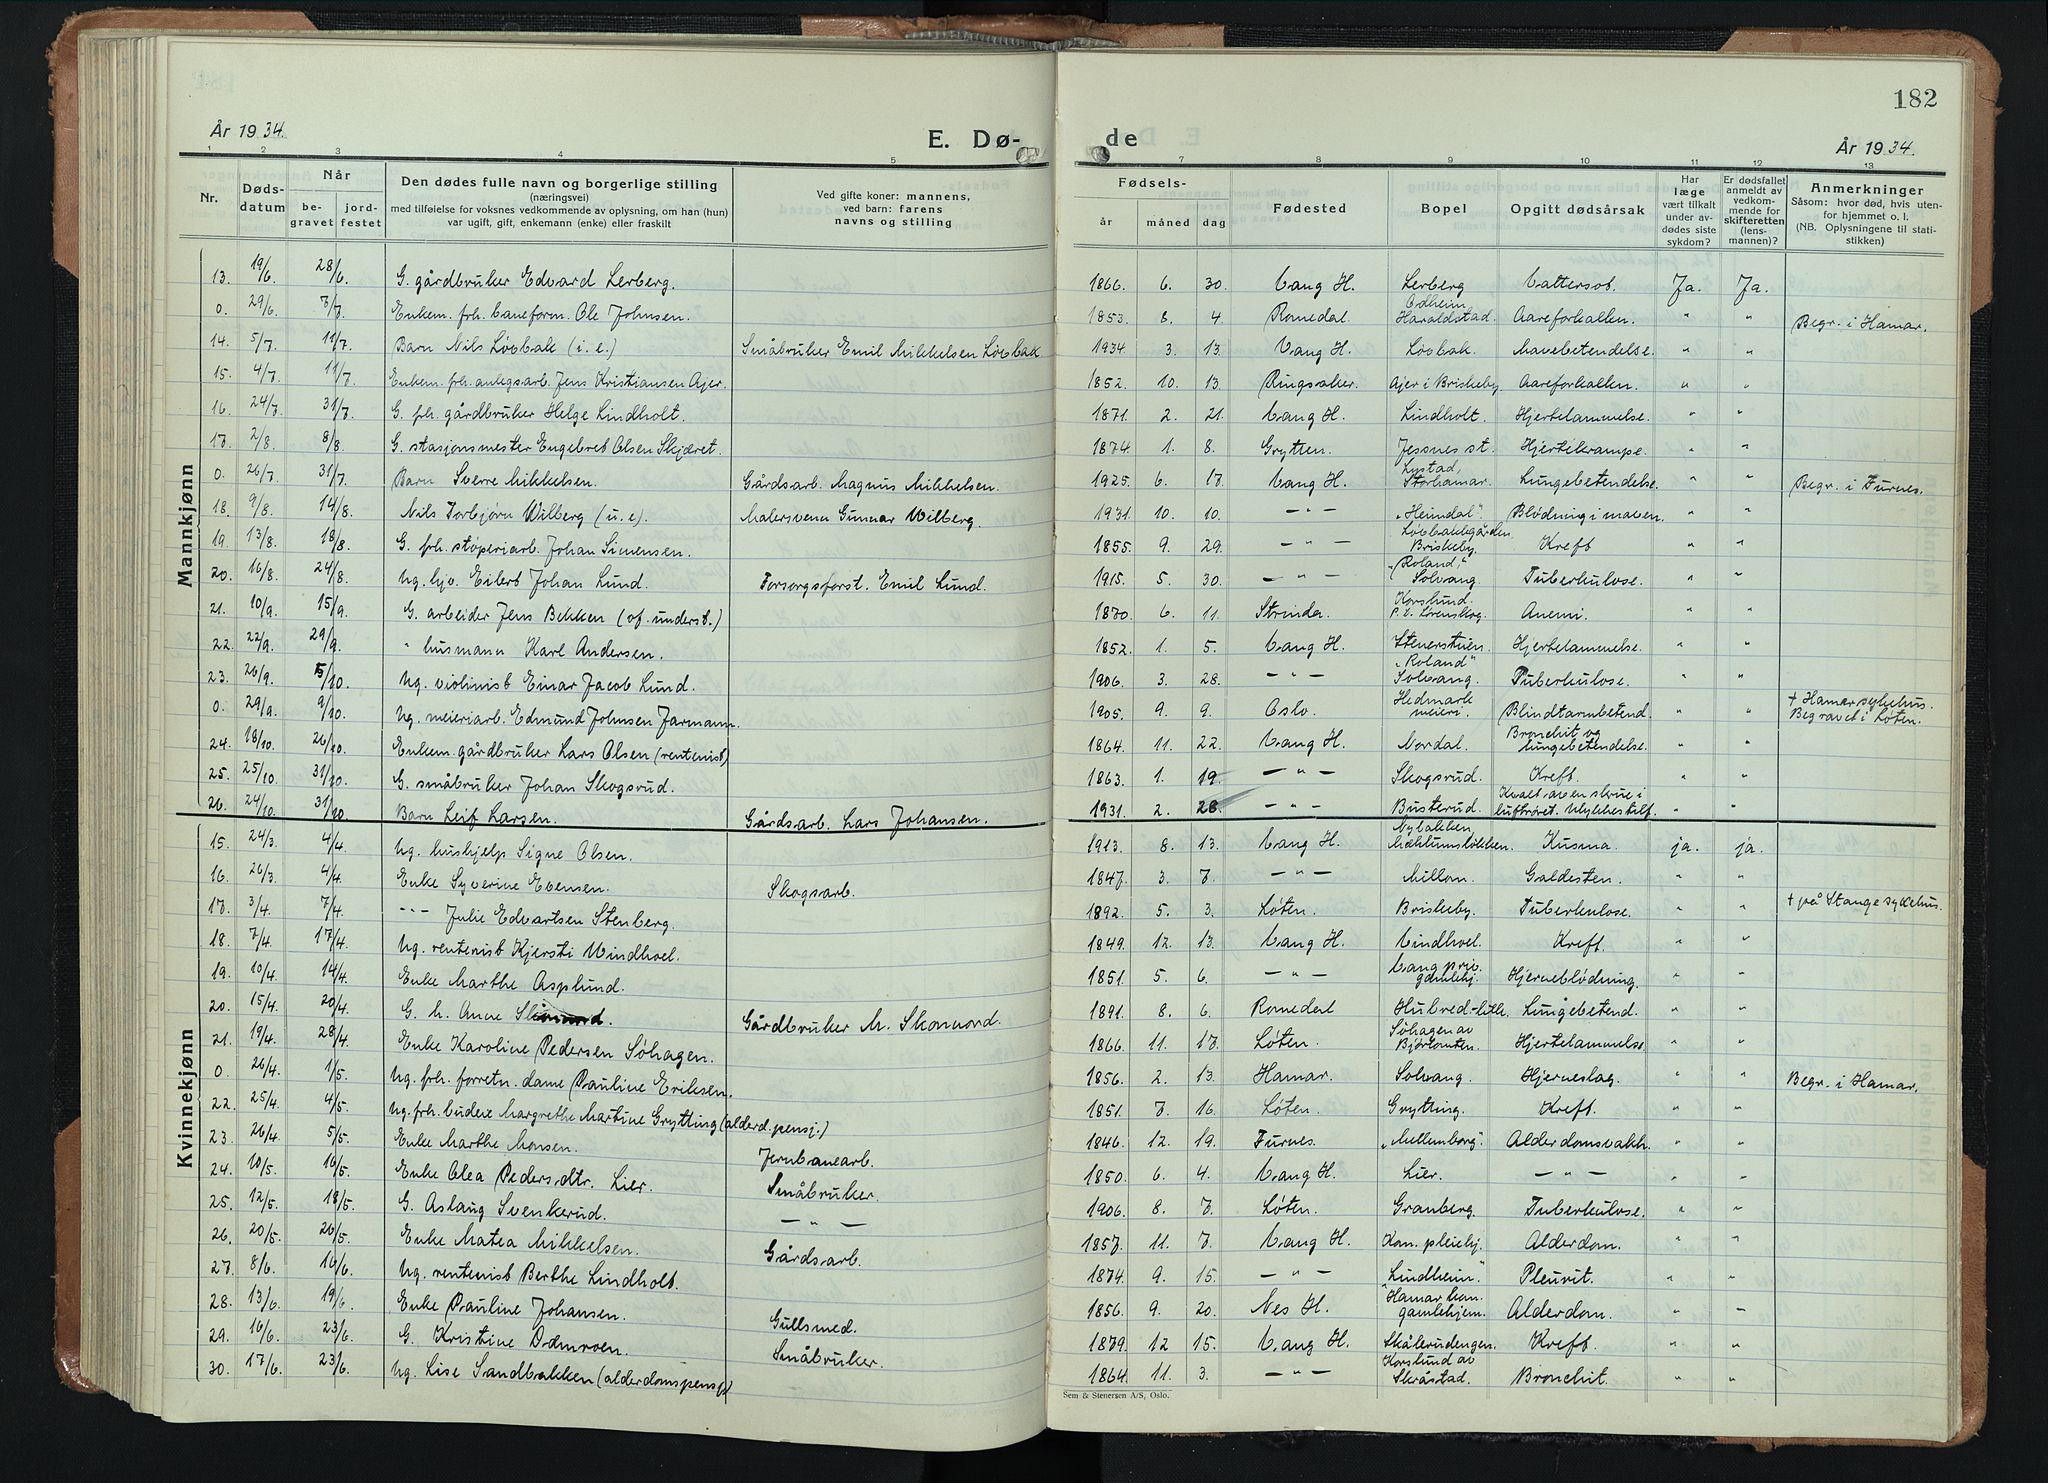 182
År 1934.
E. Dø-
de
År 1934.
1 2 3 4 5 7 8 9 10 11 12 13
Nr.
Døds-
datum
Når
be-
gravet
jord-
festet
Den dødes fulle navn og borgerlige stilling
(næringsvei)
med tilføielse for voksnes vedkommende av oplysning, om han (hun)
var ugift, gift, enkemann (enke) eller fraskilt
Ved gifte koner: mannens,
ved barn: farens
navns og stilling
Fødsels-
år måned dag
Fødested
Bopel
Opgitt dødsårsak
Har
læge
vært tilkalt
under av-
dødes siste
sykdom?
Er dødsfallet
anmeldt av
vedkom-
mende for
skifteretten
(lens-
mannen)?
Anmerkninger
Såsom: hvor død, hvis uten-
for hjemmet o. l.
(NB. Oplysningene til stati-
stikken)
Mannkjønn
13. 19/6 28/6 G. gårdbruker Edvard Lerberg. 1866. 6. 30. Vang H. Lerberg Vattersot. Ja. Ja.
0. 29/6 3/7 Enkem. frh. baneform. Ole Johnsen. 1853. 8. 4. Romedal Haraldstad. Aareforkalkn. " " Begr. i Hamar.
14. 5/7 11/7 Barn Nils Løvbak (i. e.) Småbruker Emil Mikkelsen Løvbak 1934. 3. 13. Vang H. Løvbak. Mavebetendelse. " "
15. 4/7 11/7 Enkem. frh. anlegsarb. Jens Kristiansen Ajer. 1852. 10. 13. Ringsaker. Ajer i Briskeby. Aareforkalkn. " "
16. 24/7 31/7 G. frh. gårdbruker Helge Lindholt. 1871. 2. 21. Vang H. Lindholt. Hjertelammelse. " "
17. 2/8 8/8 G. stasjonsmester Engebret Olsen Skjæret. 1874. 1. 8. Grytten. Jessnes st. Hjertekrampe. " "
0. 26/7 31/7 Barn Sverre Mikkelsen. Gårdsarb. Magnus Mikkelsen. 1925. 6. 17. Vang H. Lystad, Storhamar. Lungebetendelse. " " Begr. i Furnes.
18. 9/8 14/8 Nils Torbjørn Wilberg (u. e). Malersvenn Gunnar Wilberg. 1931. 10. 10. — " — "Heimdal" Blødning i maven. " "
19. 13/8 18/8 G. frh. støperiarb. Johan Simensen. 1855. 9. 29. — " — Løvbakkgården, Briskeby. Kreft " "
20. 16/8 24/8 Ug. hjv. Eilert Johan Lund. Forsorgsforst. Emil Lund. 1915. 5. 30. — " — "Roland," Solvang. Tuberkulose. " "
21. 10/9 15/9 G. arbeider Jens Bekken (of. underst.) 1870. 6. 11. Strinda. Korslund. Anemi. " "
22. 22/9 29/9 " husmann Karl Andersen. 1852. 1. 5. Vang H. Stenerstuen. Hjertelammelse. " "
23. 26/9 5/10. Ug. violinist Einar Jacob Lund. 1906. 3. 28. — " — "Roland" Solvang. Tuberkulose. " "
0. 29/9 9/10. Ug. meieriarb. Edmund Johnsen Jarmann. 1905. 9. 9. Oslo. Hedmark meieri. Blindtarmbetend. " " + Hamar sykehus. Begravet i Løten.
24. 18/10. 26/10. Enkem. gårdbruker Lars Olsen (rentenist) 1864. 11. 22. Vang H. Nordal. Bronchit og lungebetendelse. " "
25. 25/10. 31/10. G. småbruker Johan Skogsrud. 1863. 1. 19. — " — Skogsrud. Kreft. " "
26. 24/10. 31/10 Barn Leif Larsen. Gårdsarb. Lars Johansen. 1931. 2. 28. — " — Busterud. Kvalt av en skrue i luftrøret. Ulykkestilf. " "
Kvinnekjønn
15. 24/3. 4/4. Ug. hushjelp Signe Olsen. 1913. 8. 13. Vang H. Nybakken, Mæhlumsløkken. Kusma. ja. ja.
16. 26/3. 4/4. Enke Syverine Evensen. Skogsarb. 1847. 3. 7. — " — Millom. Galdesten. " "
17. 3/4. 7/4. — " — Julie Edvartsen Stenberg. 1892. 5. 3. Løten. Briskeby. Tuberkulose. " " + på Stange sykehus.
18. 7/4. 17/4. Ug. rentenist Kjersti Vindhoel. 1849. 12. 13. Vang H. Vindhoel. Kreft. " "
19. 10/4. 14/4. Enke Marthe Asplund. 1851. 5. 6. — " — Vang priv. gamlehj. Hjerneblødning. " "
20. 15/4. 20/4. G. k. Anne Gårdbruker M. Skomord. 1891. 8. 6. Romedal Hubred-litle. Lungebetend. " "
21. 19/4. 28/4. Enke Karoline Pedersen Søhagen. 1866. 11. 17. Løten. Søhagen av Hjertelammelse. " "
0. 26/4. 1/5. Ug. frh. forretn. dame Pauline Eriksen. 1856. 2. 13. Hamar. Solvang. Hjerneslag. " " Begr. i Hamar.
22. 25/4. 4/5. Ug. frh. budeie Margrethe Martine Grytting (alderd.pensj.) 1851. 7. 16. Løten. Grytting. Kreft. " "
23. 26/4. 5/5. Enke Marthe Monsen. Jernbanearb. 1846. 12. 19. Furnes. "Mellemborg". Alderdomsvakh. " "
24. 10/5. 16/5. Enke Olea Pedersdtr. Lier. Småbruker. 1850. 6. 4. Vang H. Lier. — " — " "
25. 12/5. 18/5. G. Aslaug Svenkerud. — " — 1906. 8. 7. Løten. Granberg. Tuberkulose. " "
26. 20/5. 26/5. Enke Matea Mikkelsen. Gårdsarb. 1857. 11. 7. Vang H. Kom. pleiehj. Alderdom. " "
27. 8/6. 16/6. Ug. rentenist Berthe Lindholt. 1874. 9. 15. — " — "Lindheim." Pleurit. " "
28. 13/6. 19/6. Enke Pauline Johansen. Gullsmed. 1856. 9. 20. Nes H. Hamar kom. gamlehjem. Alderdom. " "
29. 16/6. 23/6. G. Kristine Dømroen. Småbruker. 1879. 12 15. Vang H. Skålerudengen. Kreft. " "
30. 17/6. 23/6. Ug. Lise Sandbakken (alderdomspensj.) 1864. 11. 3. — " — Korslund av Skråstad. Bronchit. " "
Sem & Stenersen A/S, Oslo.